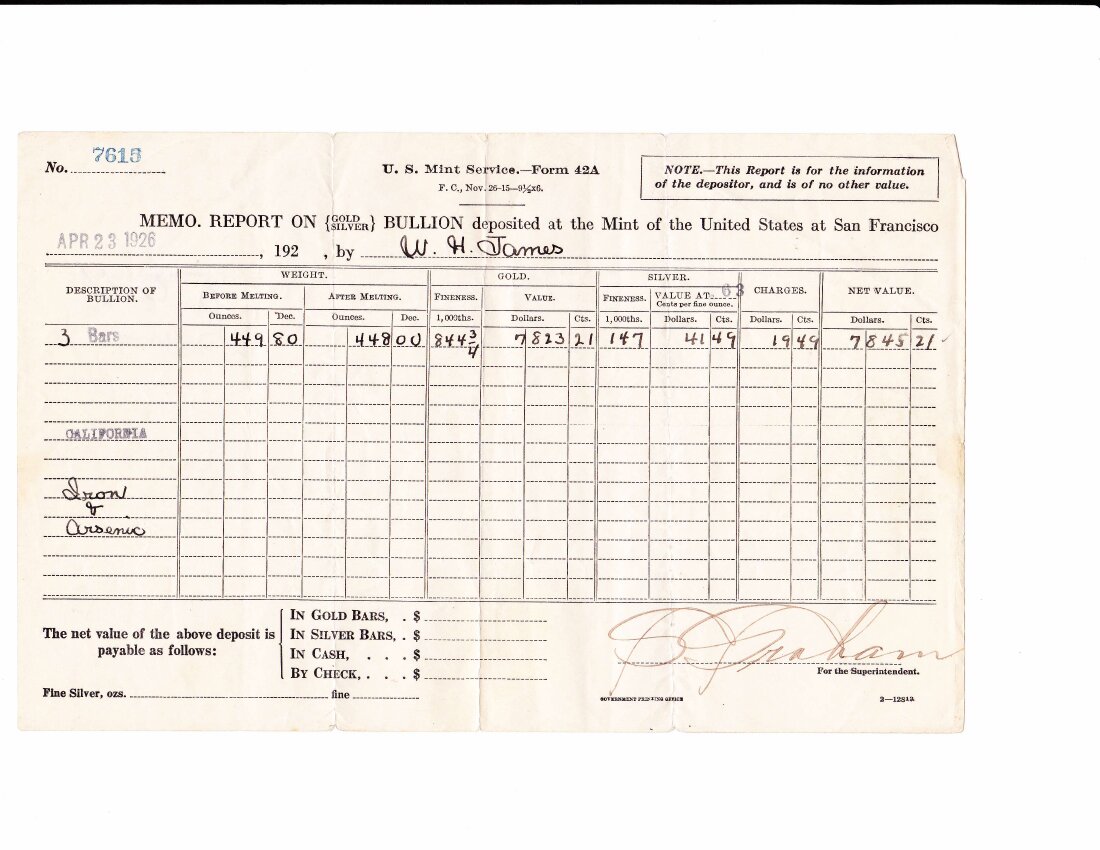 No. 7615
U. S. Mint Service.—Form 42A
F. C., Nov. 26-15—9¼x6.
NOTE.—This Report is for the information
of the depositor, and is of no other value.
MEMO. REPORT ON {GOLD SILVER} BULLION deposited at the Mint of the United States at San Francisco
APR 23 1926, 192 , by W. H. James
DESCRIPTION OF BULLION. WEIGHT. GOLD. SILVER. CHARGES. NET VALUE.
BEFORE MELTING. AFTER MELTING. FINENESS. VALUE. FINENESS. VALUE AT 63 Cents per fine ounce.
Ounces. Dec. Ounces. Dec. 1,000ths. Dollars. Cts. 1,000ths. Dollars. Cts. Dollars. Cts. Dollars. Cts.
3 Bars 449 80 448 00 844 3/4 7823 21 147 41 49 19 49 7845 21
CALIFORNIA
Iron
&
Arsenic
The net value of the above deposit is
payable as follows:
IN GOLD BARS, . $
IN SILVER BARS, . $
IN CASH, . . . $
BY CHECK, . . . $
Graham
For the Superintendent.
Fine Silver, ozs. fine
GOVERNMENT PRINTING OFFICE
2—12812